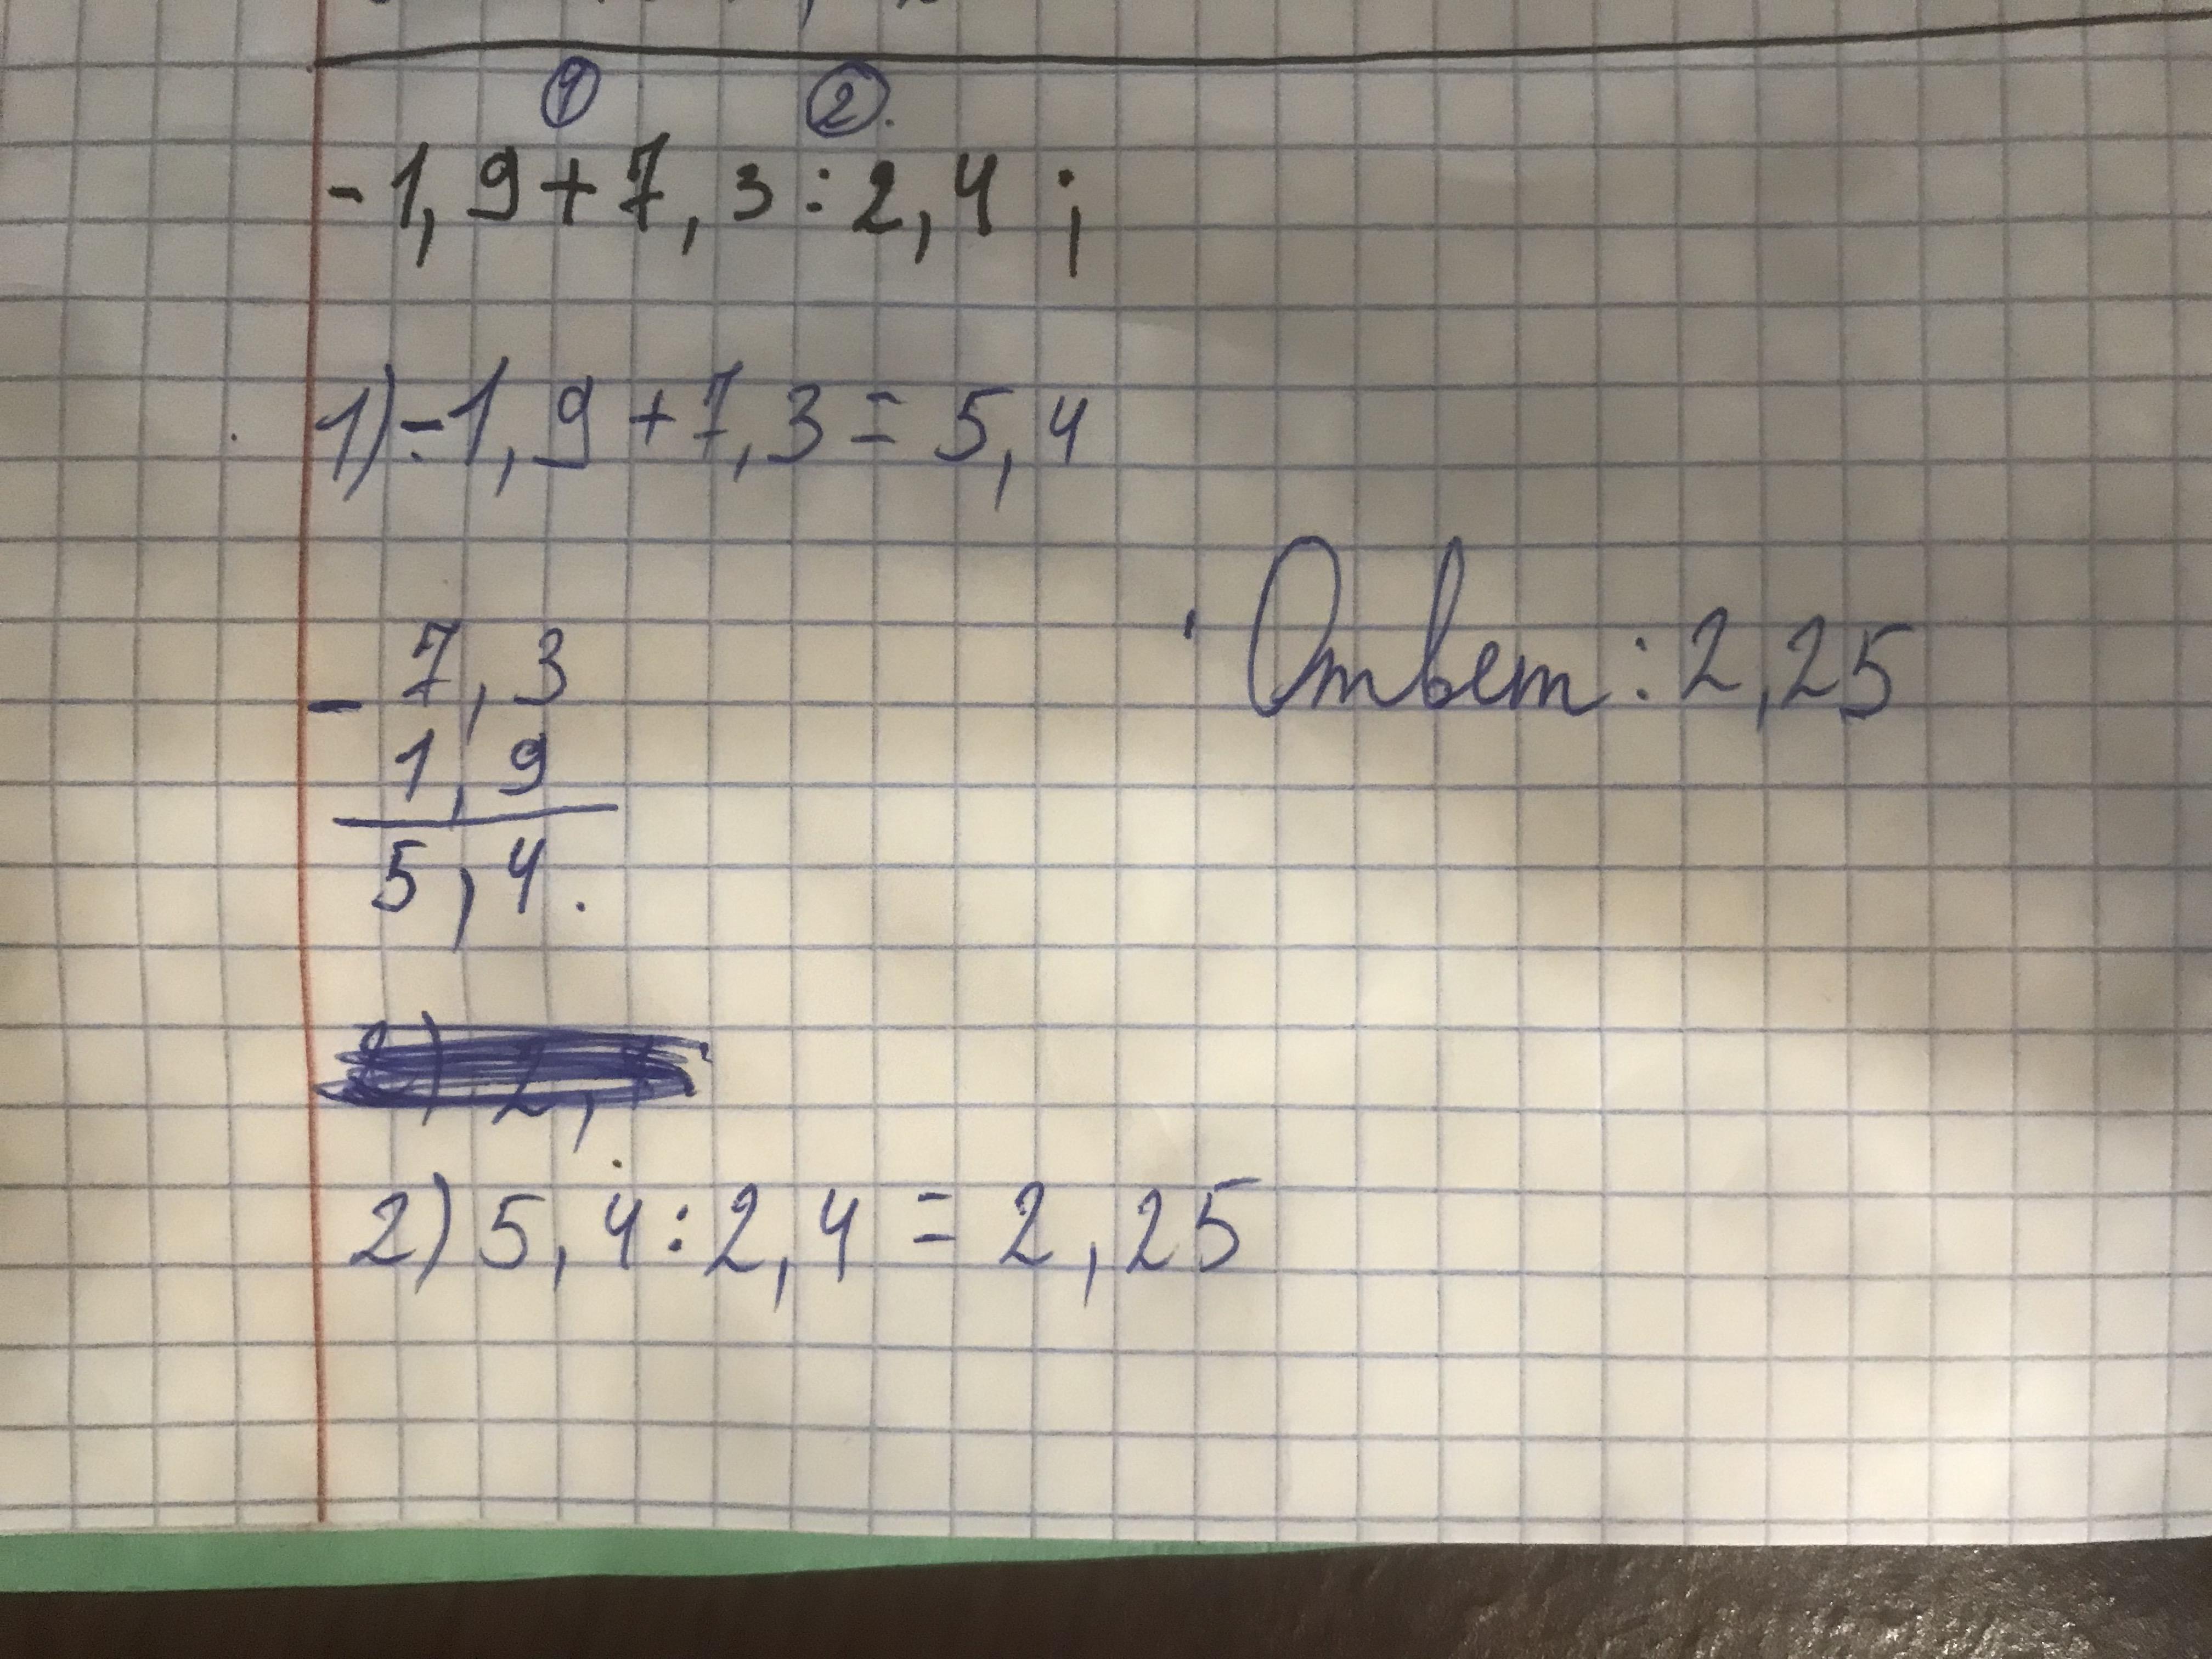 ① ②.
-1,9+7,3:2,4;
1) -1,9+7,3=5,4
- 7,3
1,9
5,4.
Ответ: 2,25
2) 5,4:2,4=2,25